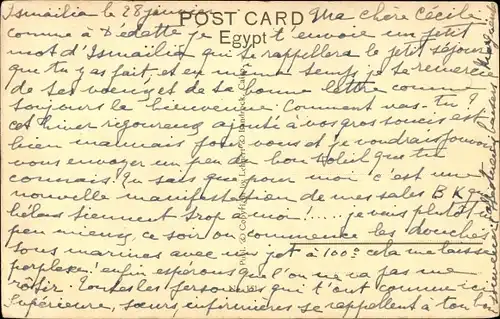 Ismaïlia le 28 janvier Ma chère Cécile
POST CARD
Egypt
comme à Dédette je t'envoie un petit
mot d'Ismaïlia qui te rappellera le petit séjour
que tu y as fait, et en même temps je te remercie
de tes voeux et de ta bonne lettre comme
toujours la bienvenue. Comment vas-tu ?
cet hiver rigoureux ajouté à vos gros soucis est
bien mauvais pour vous et je voudrais pouvoir
vous envoyer un peu de bon soleil que tu
connais. Tu sais que pour moi c'est une
nouvelle manifestation de mes sales B K qui
hélas tiennent trop à moi !..... je vais plutôt un
peu mieux, ce soir on commence les douches
sous marines avec un jet à 100° cela me laisse
perplexe ! enfin espérons que l'on ne va pas me
rôtir. Toutes les personnes qui t'ont connue ici
Supérieure, soeurs infirmières se rappellent à ton bon